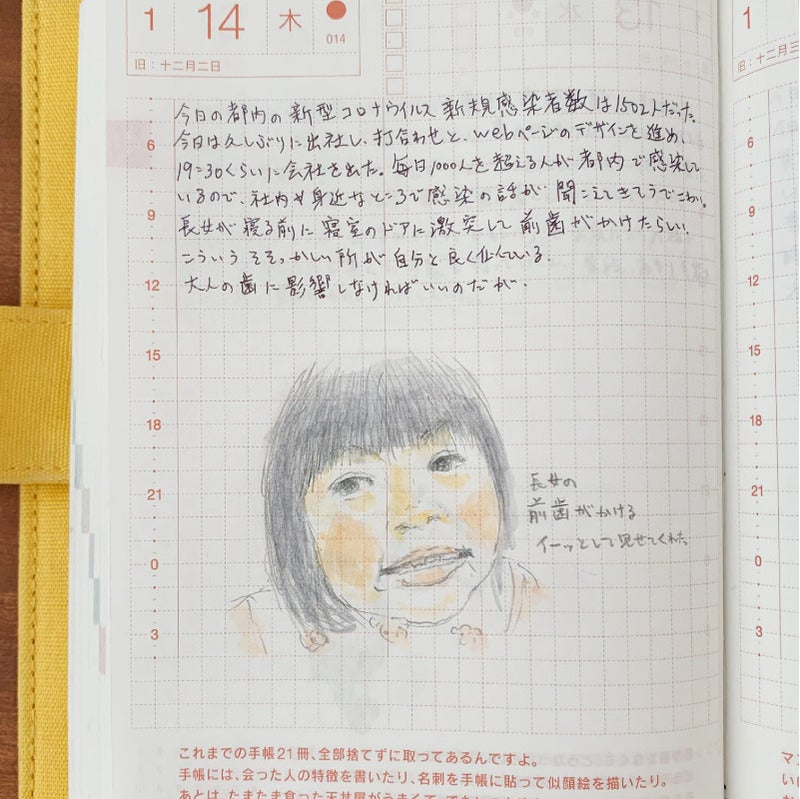 1 14 木
014
旧：十二月二日
今日の都内の新型コロナウイルス新規感染者数は1502人だった。
今日は久しぶりに出社し、打合わせと、webページのデザインを進め、
19:30くらいに会社を出た。毎日1000人を超える人が都内で感染して
いるので、社内や身近なところで感染の話が聞こえてきそうでこわい。
長女が寝る前に寝室のドアに激突して前歯がかけたらしい。
こういうそそっかしい所が自分と良く似ている。
大人の歯に影響しなければいいのだが。
6
9
12
15
18
21
0
3
長女の
前歯がかける
イーッとして見せてくれた
これまでの手帳21冊、全部捨てずに取ってあるんですよ。
手帳には、会った人の特徴を書いたり、名刺を手帳に貼って似顔絵を描いたり。
あとは、たまたま食った天丼屋がうまくて、
1
旧：十二月三
6
9
12
15
18
21
0
3
マン